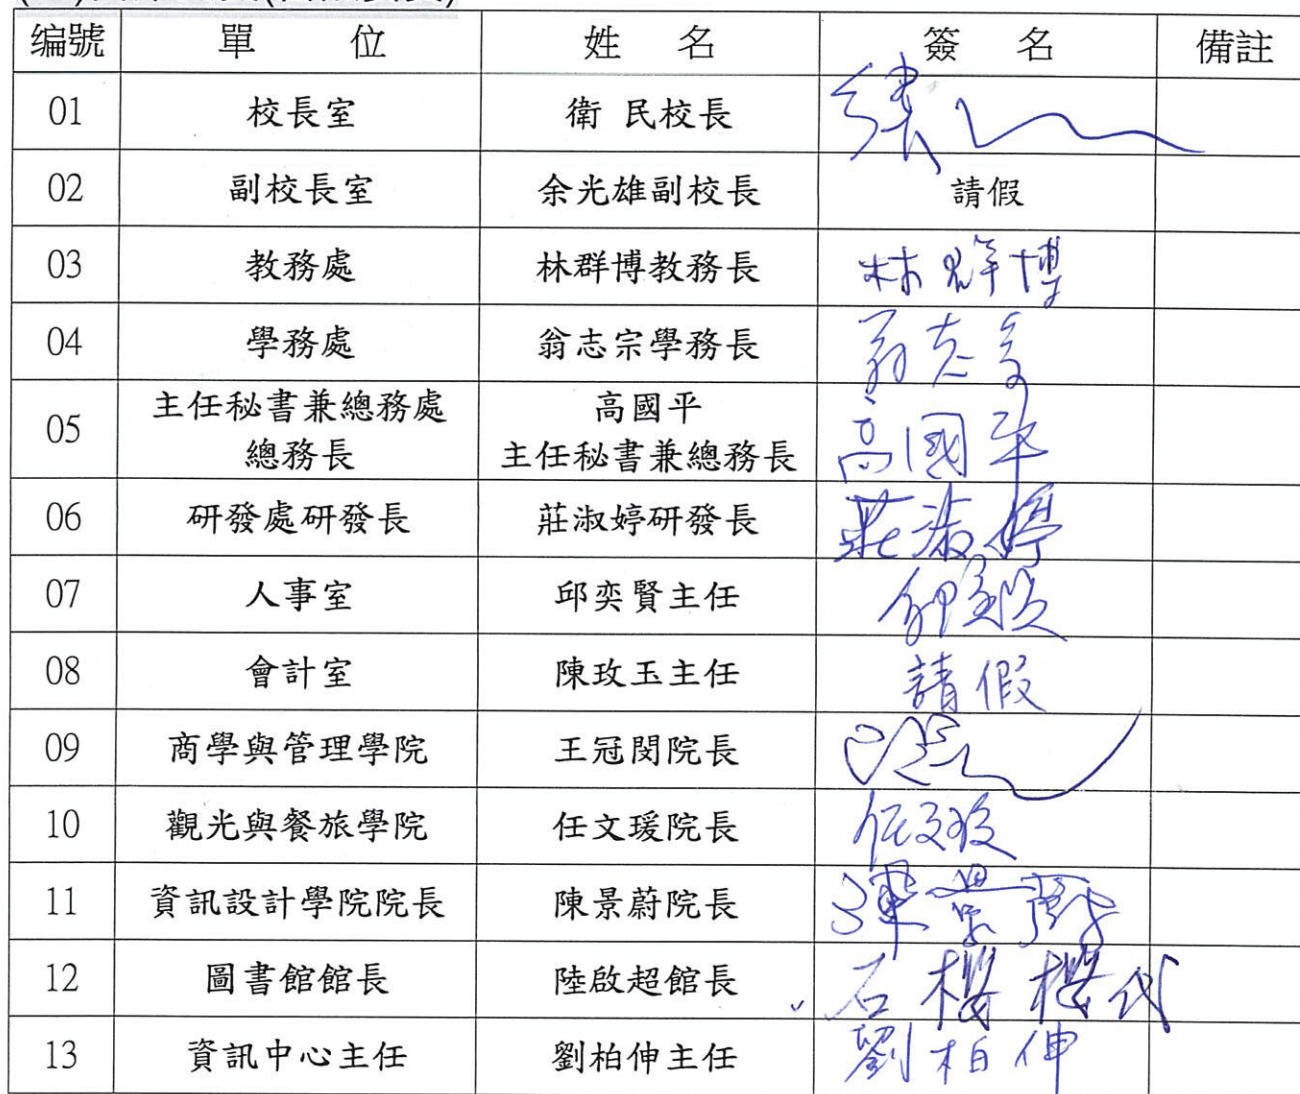 编號 單 位 姓 名 簽 名 備註
01 校長室 衛 民校長
02 副校長室 余光雄副校長 請假
03 教務處 林群博教務長 林群博
04 學務處 翁志宗學務長 翁志宗
05 主任秘書兼總務處 高國平 高國平
總務長 主任秘書兼總務長
06 研發處研發長 莊淑婷研發長 莊淑婷
07 人事室 邱奕賢主任 邱奕賢
08 會計室 陳玫玉主任 請假
09 商學與管理學院 王冠閔院長
10 觀光與餐旅學院 任文瑗院長 任文瑗
11 資訊設計學院院長 陳景蔚院長 陳景蔚
12 圖書館館長 陸啟超館長 石櫻櫻代
13 資訊中心主任 劉柏伸主任 劉柏伸